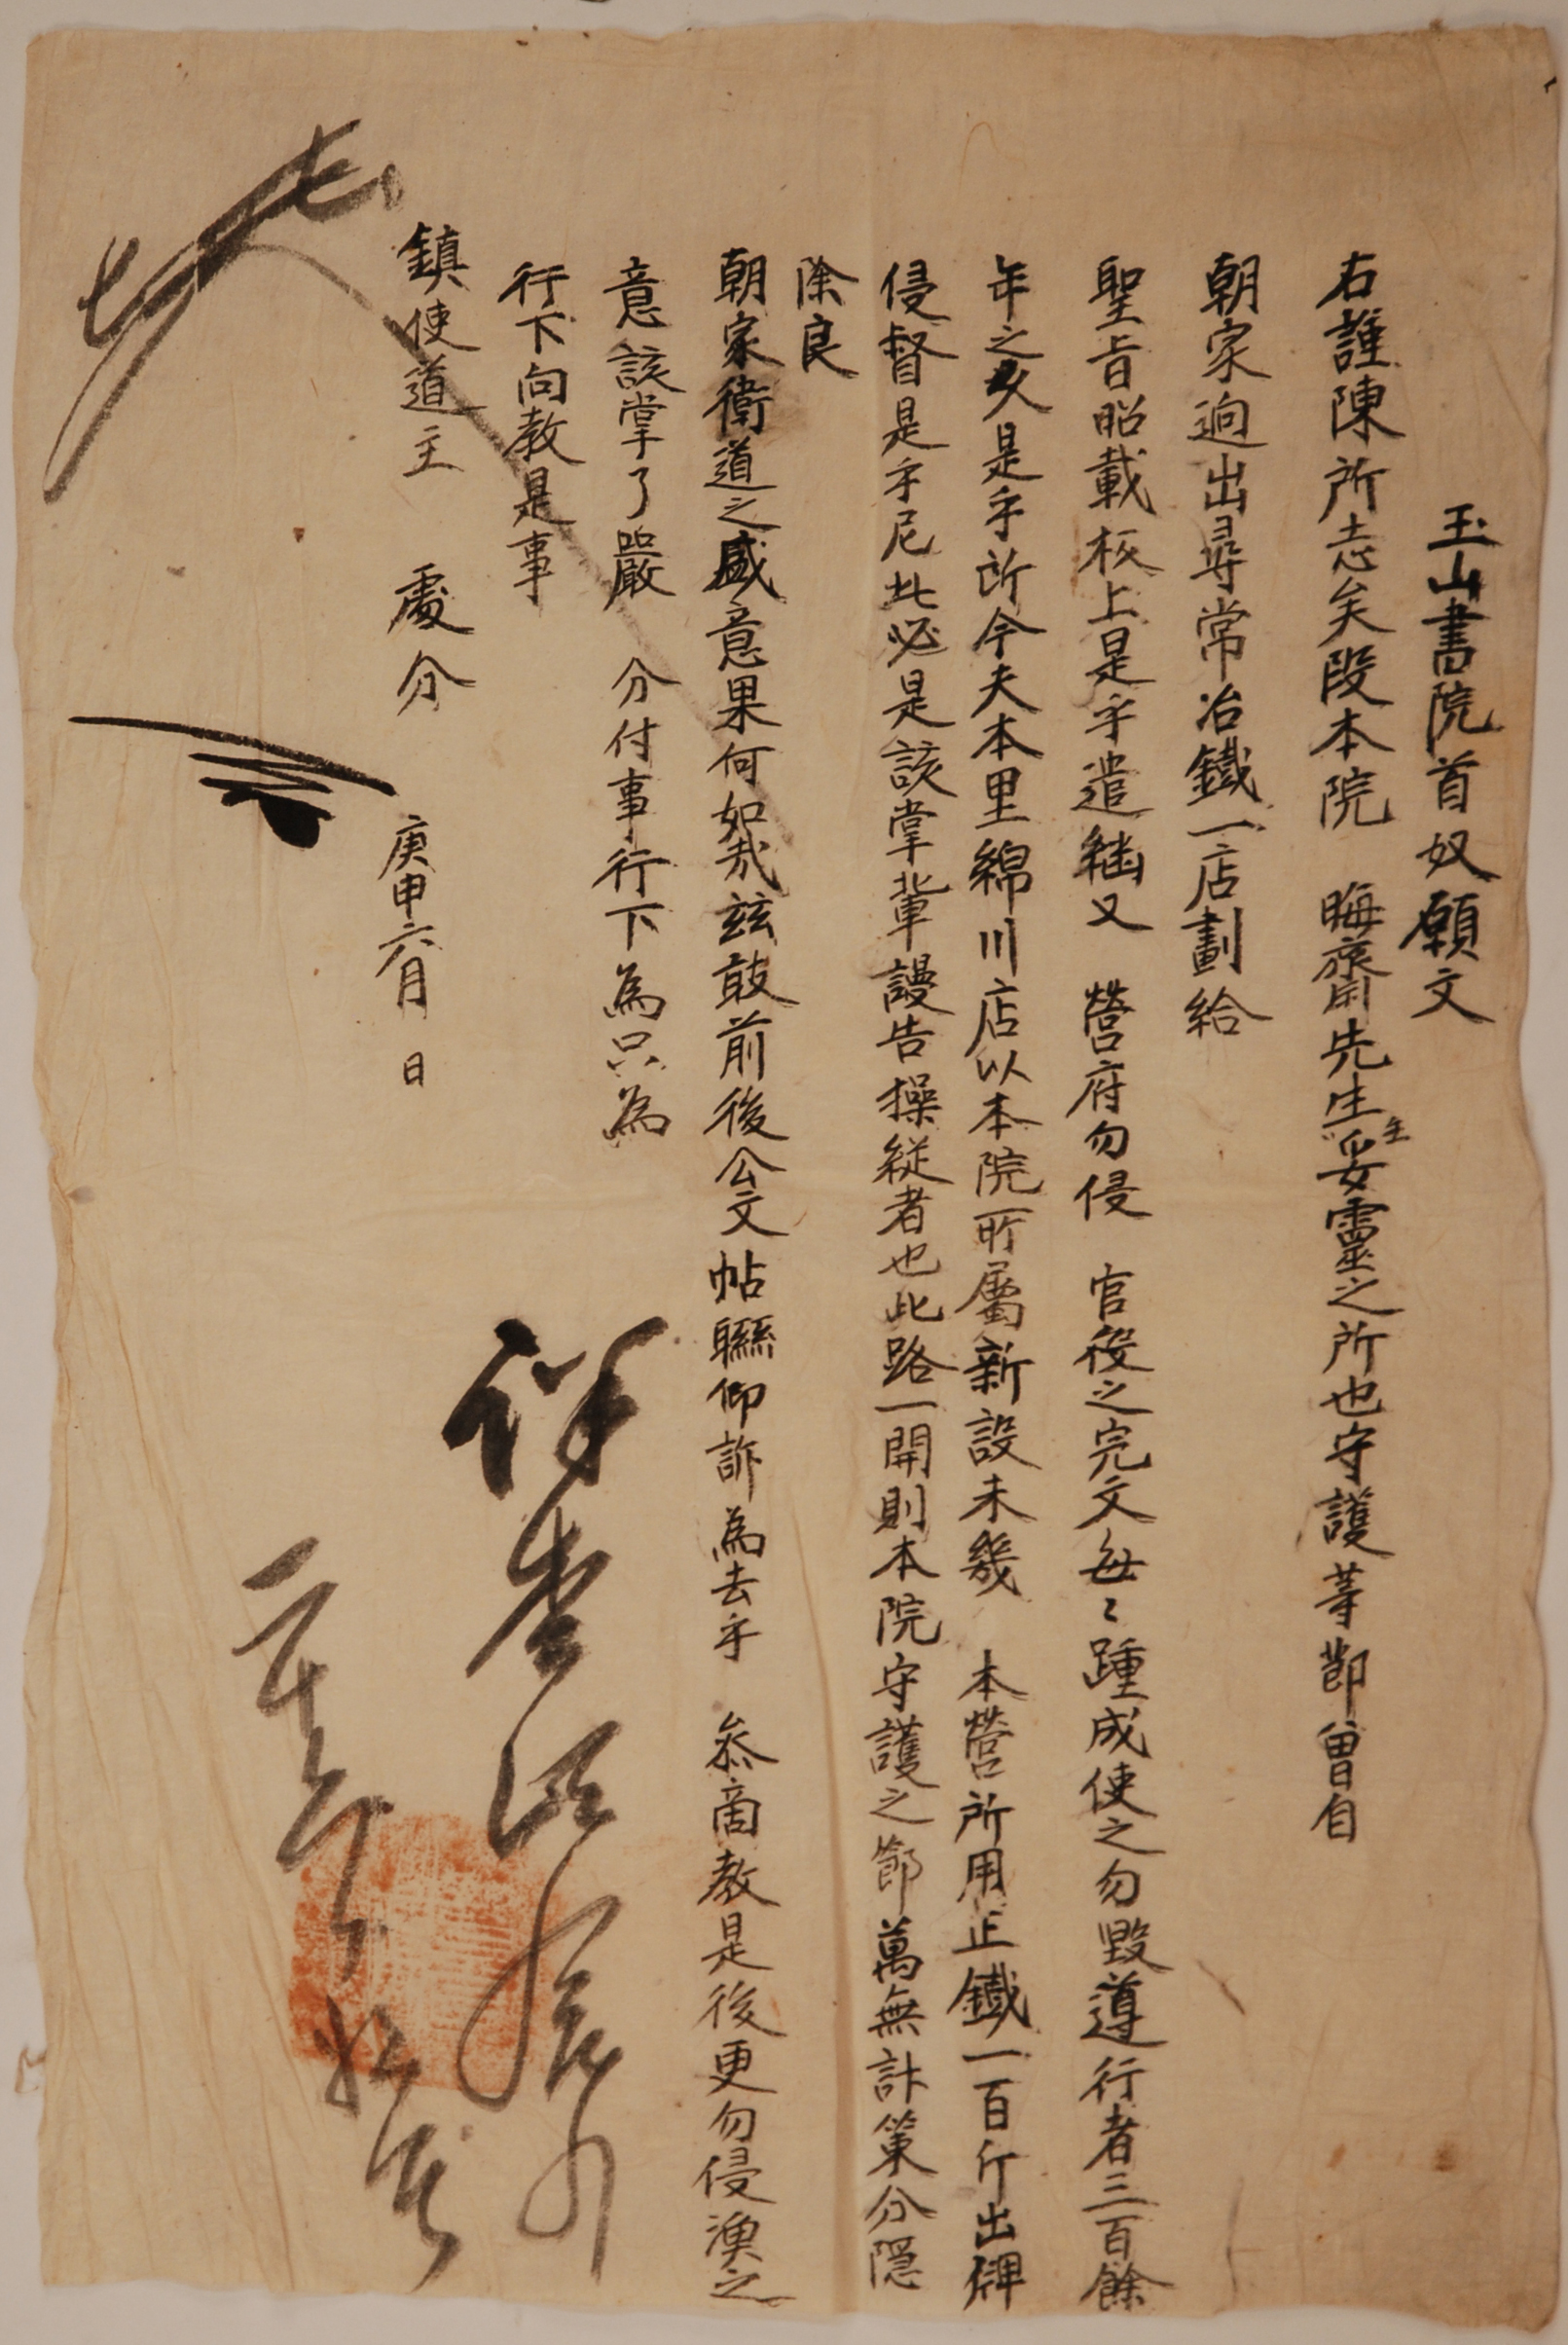 玉山書院首奴願文
右謹陳所志矣段本院 晦齋先生主妥靈之所也守護等節曾自
朝家逈出尋常冶鐵一店劃給
聖旨昭載板上是乎遣繼又 營府勿侵 官役之完文每〻踵成使之勿毀遵行者三百餘
年之久是乎所今夫本里綿川店以本院所屬新設未幾 本營所用正鐵一百斤出牌
侵督是乎尼此必是該掌輩謾告操縱者也此路一開則本院守護之節萬無計策分隠
除良
朝家衛道之盛意果何如㢤玆敢前後公文帖聯仰訴為去乎 叅商教是後更勿侵漁之
意該掌了嚴 分付事行下為只為
行下向教是事
鎮使道主 處分
庚申六月 日